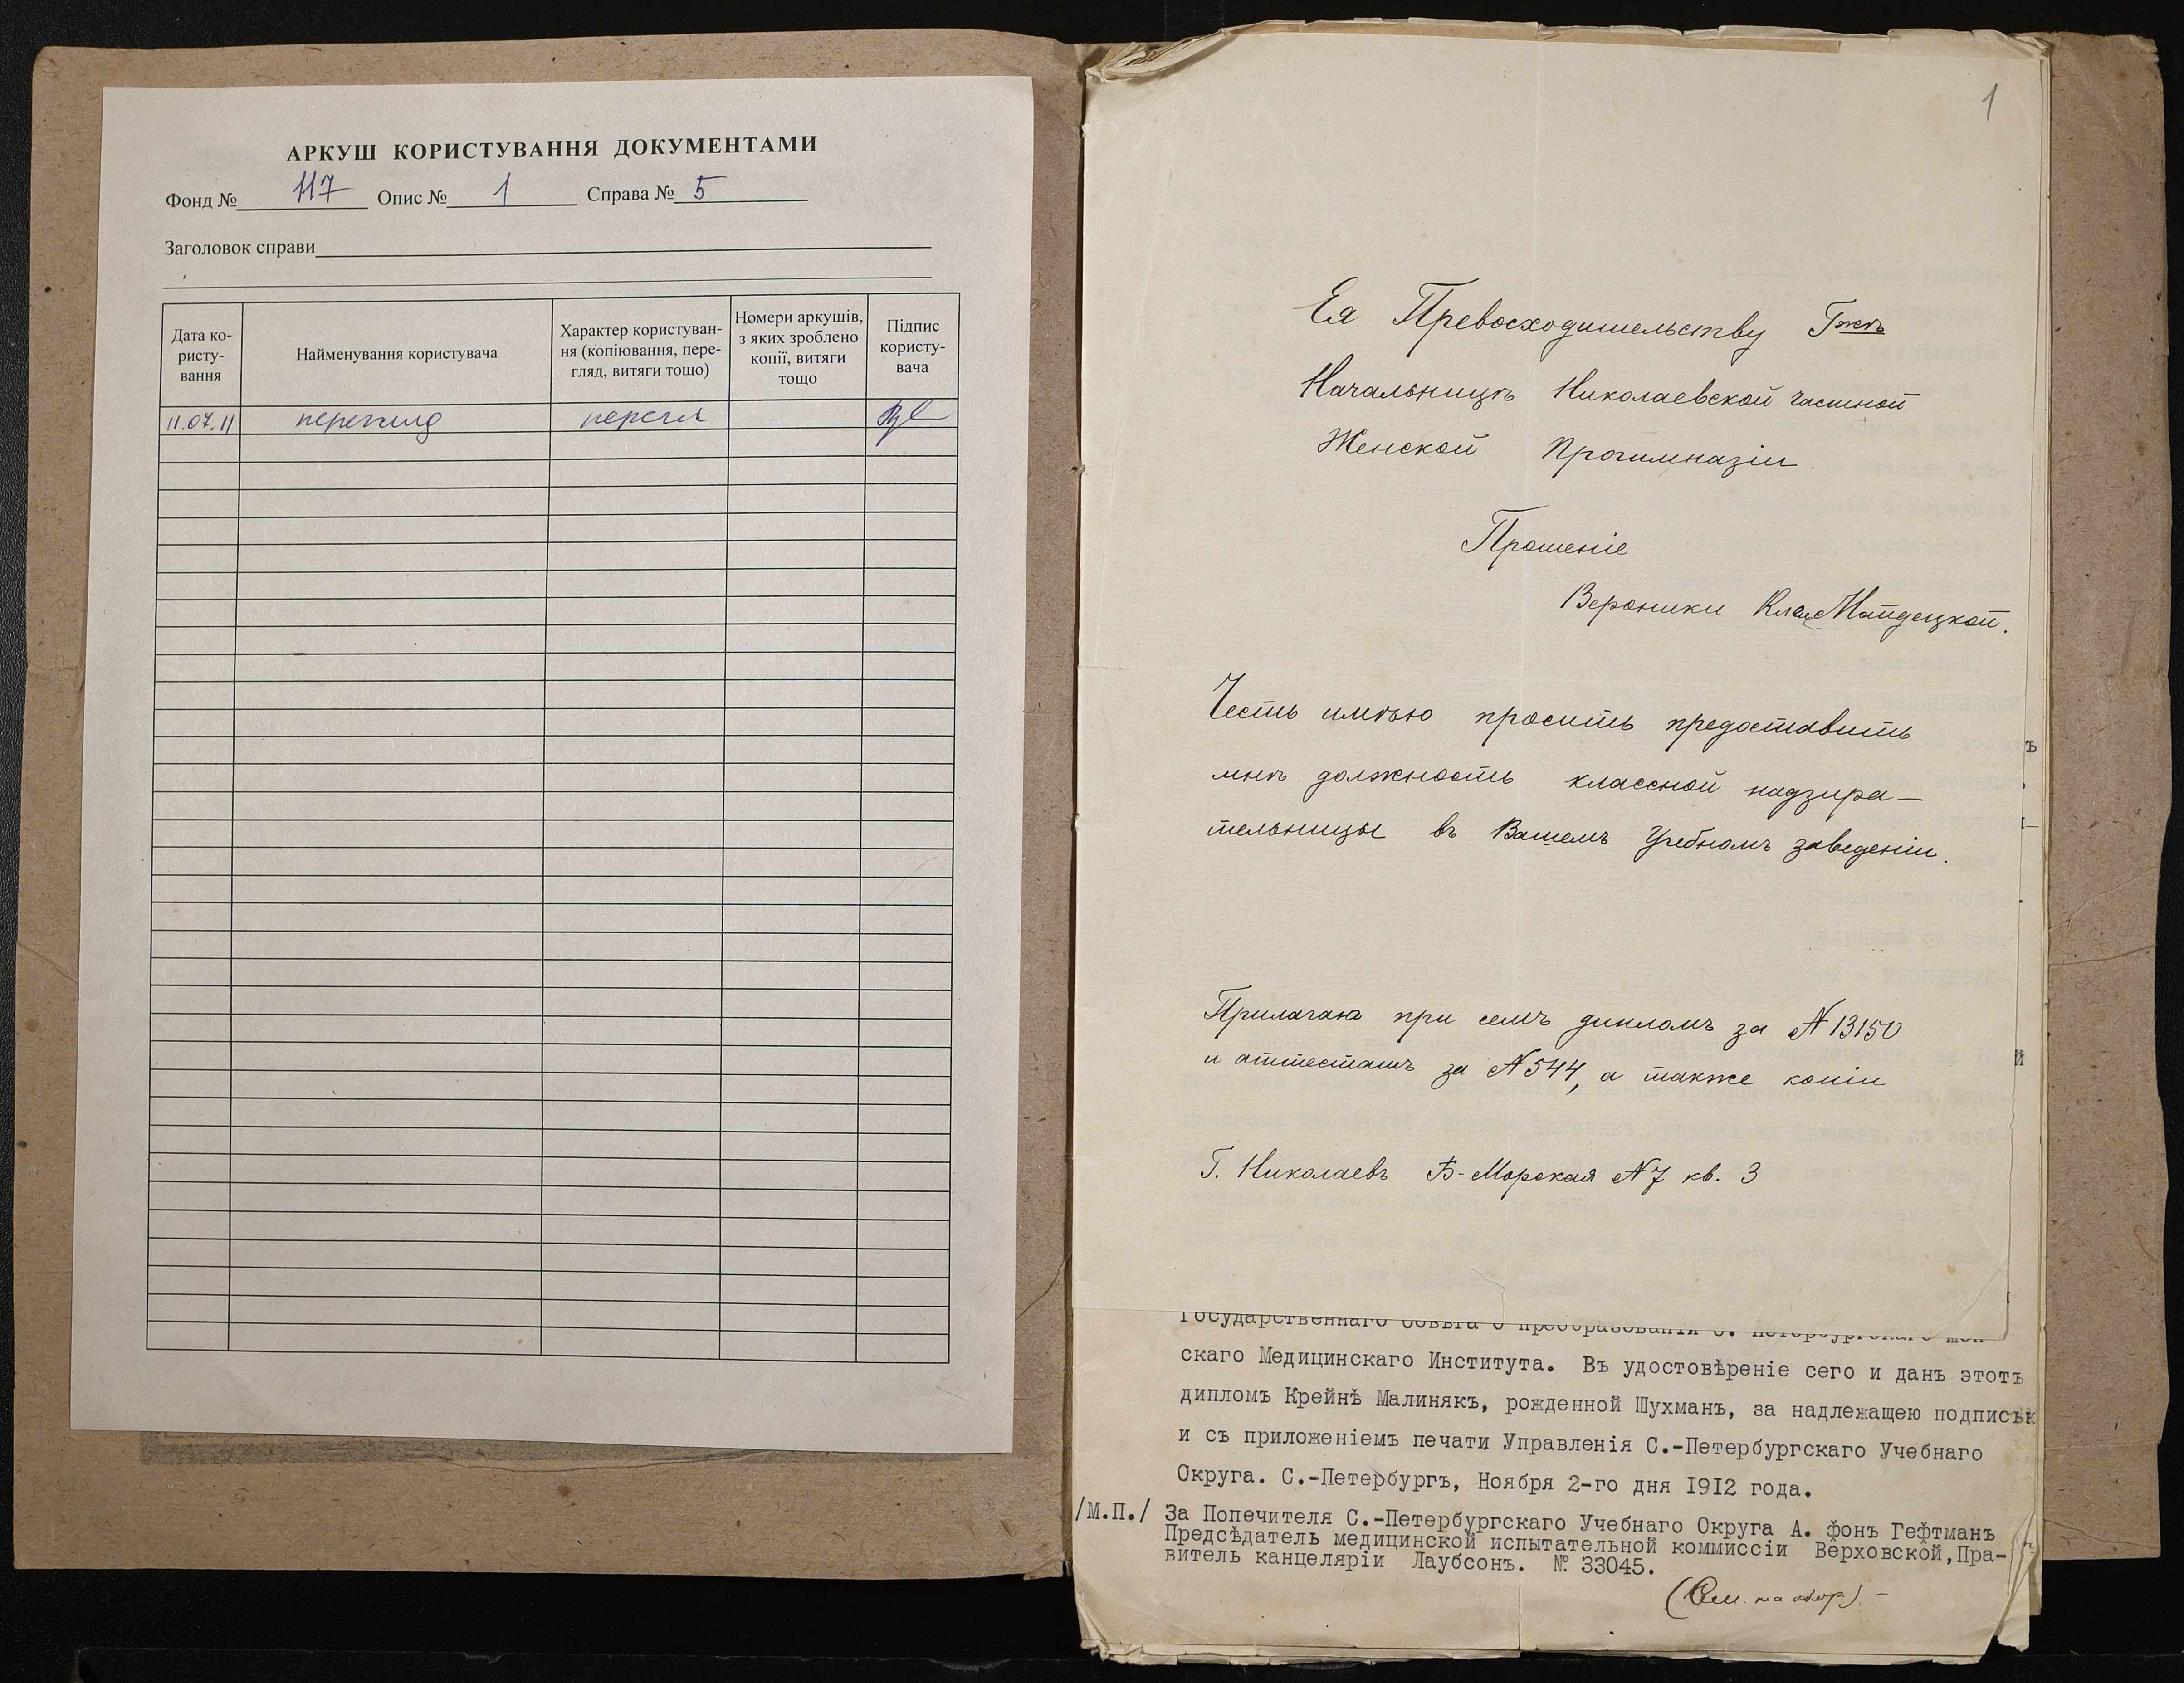 АРКУШ КОРИСТУВАННЯ ДОКУМЕНТАМИ
Фонд № 117 Опис № 1 Справа № 5
Заголовок справи
Дата ко-
ристу-
вання
Найменування користувача
Характер користуван-
ня (копіювання, пере-
гляд, витяги тощо)
Номери аркушів,
з яких зроблено
копії, витяги
тощо
Підпис
користу-
вача
11.07.11
1
Ея Превосходительству Гжѣ
Начальницѣ Николаевской частной
Женской Прогимназіи.
Прошеніе
Вероники Майдецкой.
Честь имѣю просить предоставить
мнѣ должность классной надзира-
тельницы въ Вашемъ Учебномъ заведеніи.
Прилагаю при семъ дипломъ за № 13150
и аттестатъ за № 544, а также копіи
Г. Николаевъ Б-Морская № 7 кв. 3
скаго Медицинскаго Института. Въ удостовѣреніе сего и данъ этотъ
дипломъ Крейнѣ Малинякъ, рожденной Шухманъ, за надлежащею
и съ приложеніемъ печати Управленія С.-Петербургскаго Учебнаго
Округа. С.-Петербургъ, Ноября 2-го дня 1912 года.
/М.П./ За Попечителя С.-Петербургскаго Учебнаго Округа А. фонъ Гефтманъ
Предсѣдатель медицинской испытательной коммиссіи Верховской, Пра-
витель канцеляріи Лаубсонъ. № 33045.
(См. на обор.) -